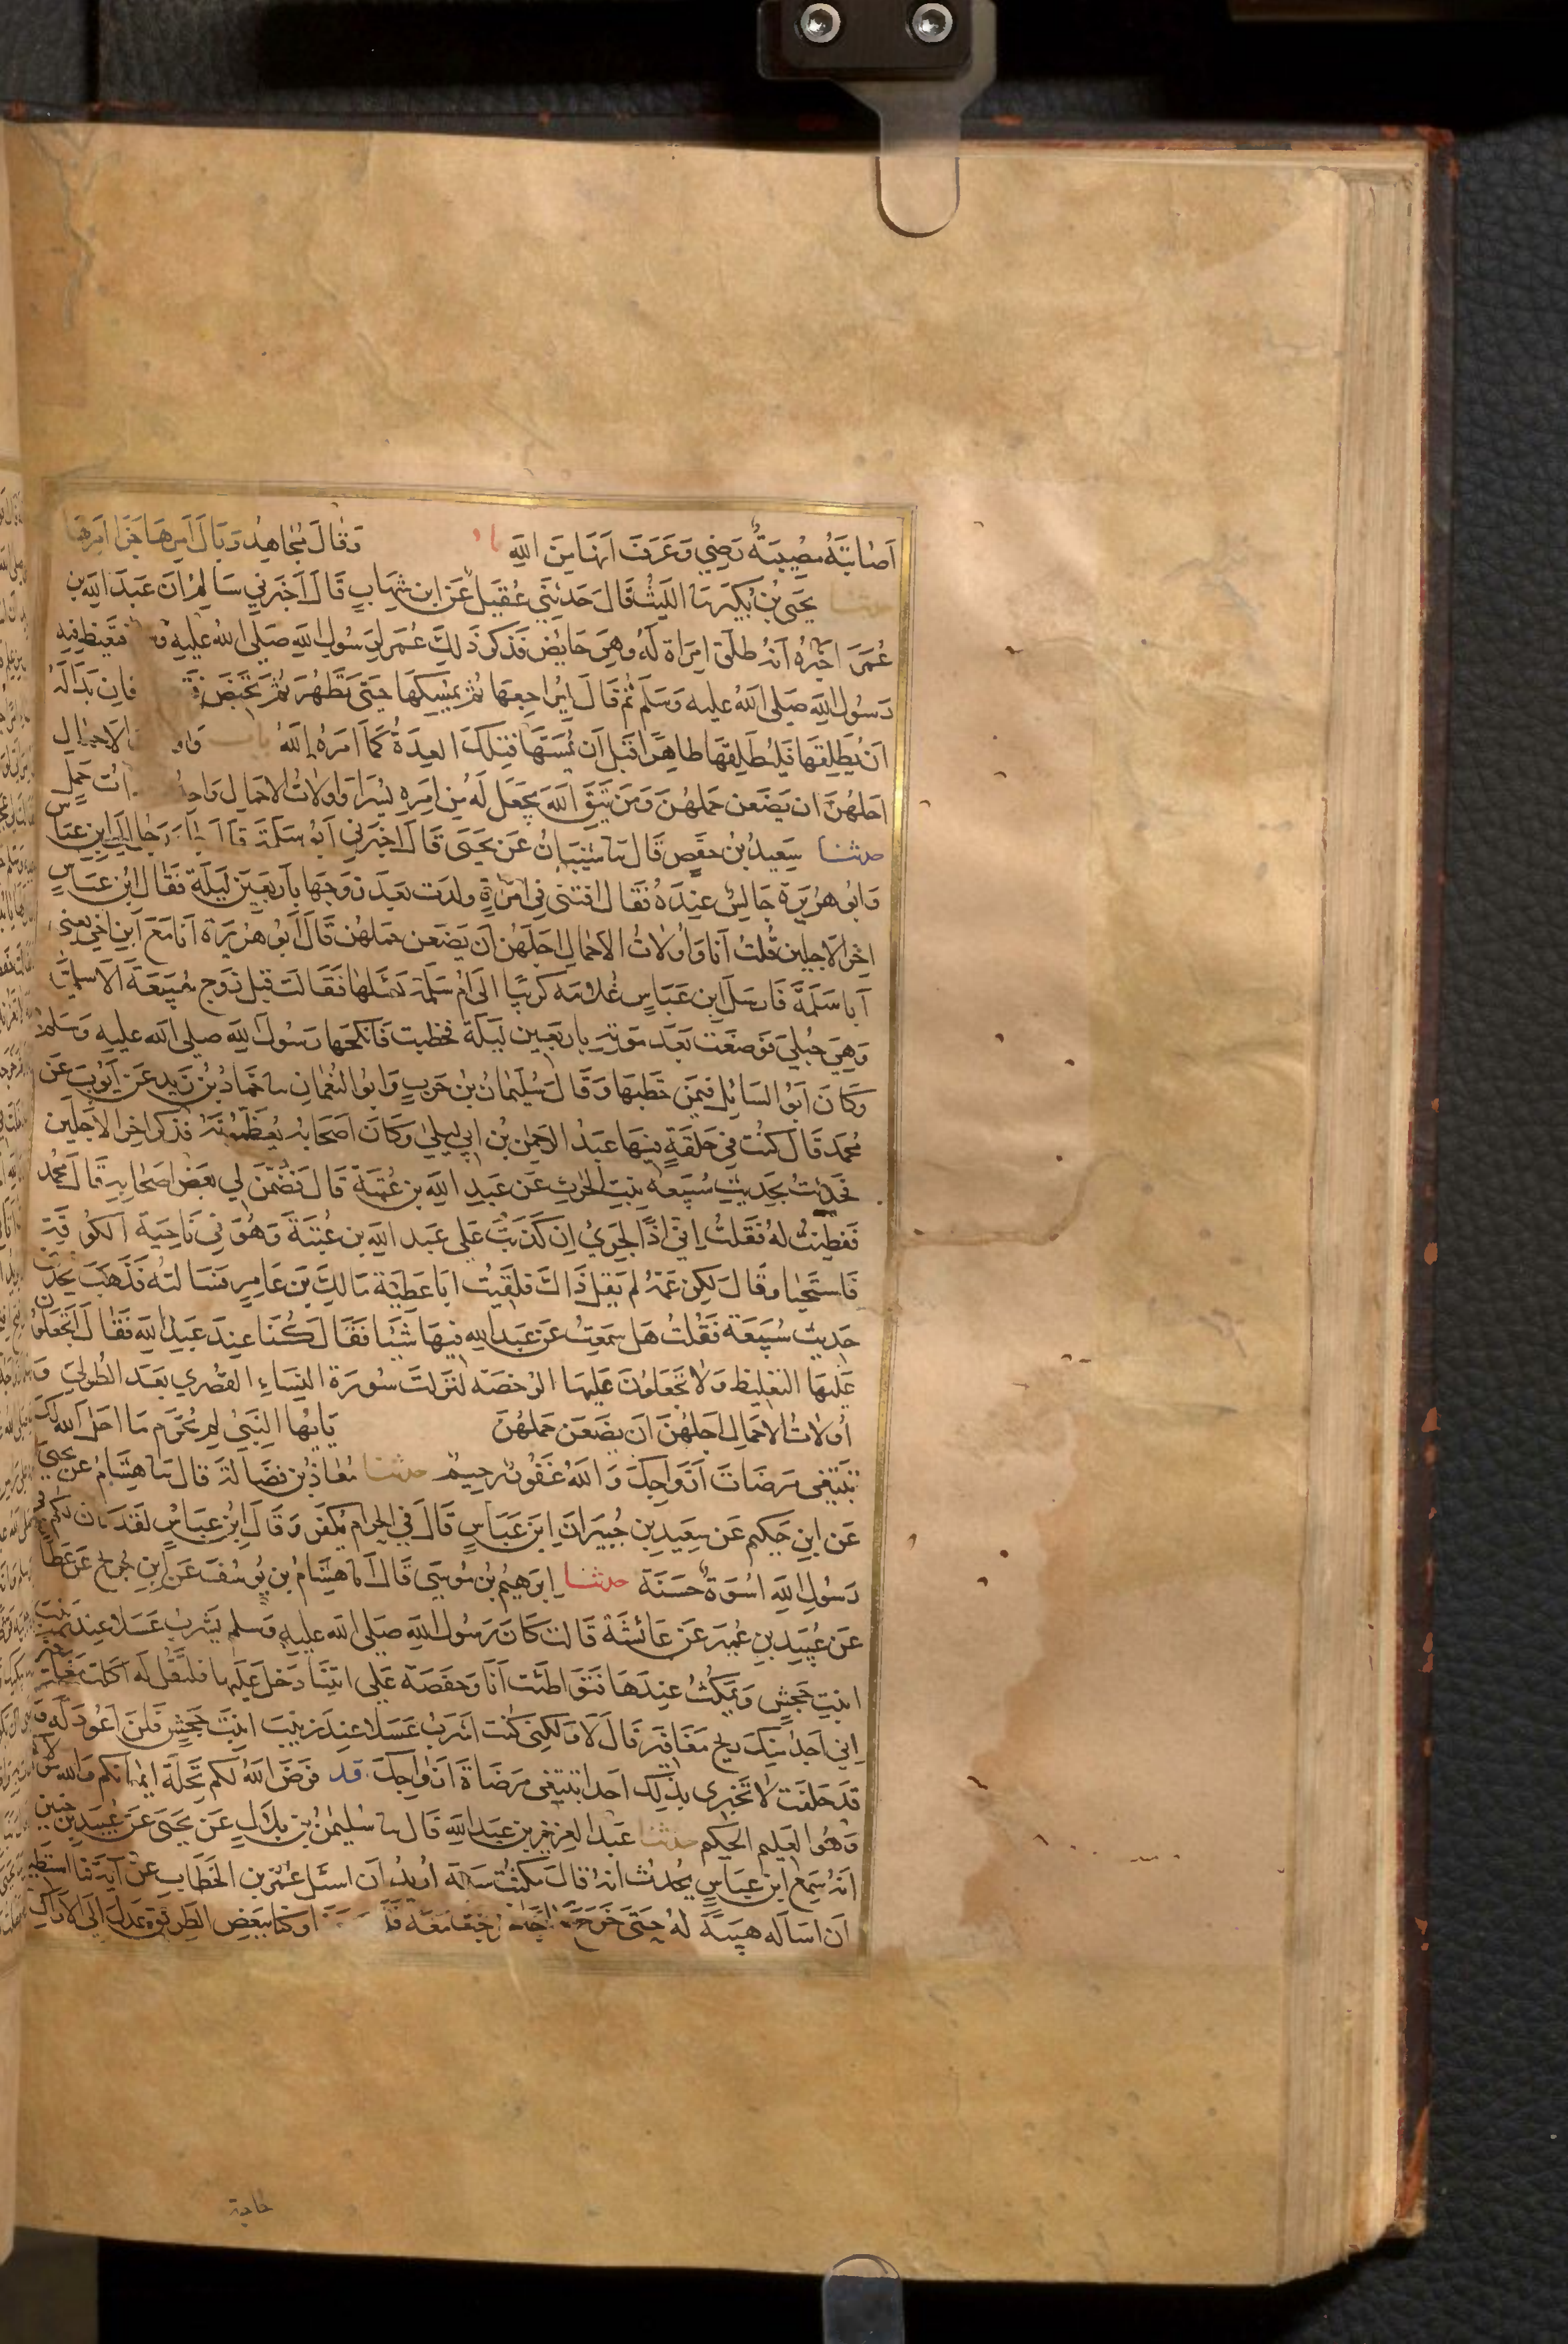 اَصَابَتهُ مُصِيبَةٌ رَضِيَ وَعَرَفَ اَنهَا مِنَ اللهِ وَقَالَ مُجَاهِدٌ وَبَالَ اَمرِهَا جَزَا اَمرِهَا
حدثنا يَحيَى بنُ بُكَيرٍ ثنا اللَيثُ قَالَ حَدثَنِي عُقَيل عَن ابن شِهَابٍ قَالَ اَخبَرنِي سَالِم اَن عَبدَ اللهِ بن
عُمَرَ اَخبَرهُ اَنهُ طَلقَ امرَاة لَهُ وهِيَ حَايض فَذكرَ ذَلِكَ عُمَر لرَسُولِ اللهِ صَلى الله عليه فتغيظ فِيهِ
رَسُول اللهِ صَلى الله عليه وَسَلم ثُم قَالَ لِيُرَاجِعهَا ثُم يُمسِكهَا حَتى تَطهُرَ ثُم تَحيضَ فَان بَدَا لَهُ
اَن يُطَلِقَهَا فَليُطَلِقهَا طاهرًا قَبلَ اَن يمَسَّهَا فتِلكَ العِدَةُ كَمَا اَمَرهُ اللهُ باب الاَحمَال
اَجَلهُنَّ ان يَضَعنَ حَملهُنَ وَمَن يَتقِ اللهَ يَجعَل لَه مِن اَمرِهِ يُسرًا وَاولاَت الاحمَال ات حَملٍ
حدثنا سَعِيدُ بن حَفصٍ قَالَ ثنا شَيبَان عَن يَحيَى قَالَ اخبَرنِي اَبو سَلَمَةَ قَالَ جا رجل الى ابنِ عَبَاس
وَابُو هُرَيرَة جَالِس عِندَهُ فَقَالَ افتنى فِي امرَاةٍ ولدَت بَعدَ زَوجِهَا باَربَعِينَ لَيلَة فَقَالَ ابن عَبَاسٍ
اخِر الاَجلين قُلتُ اَنَا وَاُولاَتُ الاَحمَال اجَلهُن اَن يَضَعن حَملهُن قَالَ اَبُو هرَيرَة اَنَا مَعَ ابن اَخِي يَعنِي
اَبا سَلَمَة فَارسَلَ ابن عَبَاسٍ غُلاَمه كرَيبًا الَى اُم سَلَمَة يَسئَلهَا فَقَالَت قتِلَ زَوج سُبَيعَةَ الاَسلميَة
وَهِيَ حُبلَى فَوضَعت بَعدَ مَوتِهِ باربَعِين لَيلَة فخطبت فَانكحَهَا رَسُول اللهِ صلى الله عليه وَسَلم
وَكَانَ اَبُو السَنابل فيمَن خَطبَهَا وَقَالَ سُلَيمَانُ بن حَربٍ وَابُو النُعمَان ثنا حَمَادُ بن زَيد عَن اَيوبَ عَن
مُحمد قَالَ كُنتُ فِي حَلقَةٍ فِيهَا عَبدُ الرحمن بن ابي لَيلَى وَكَانَ اصحَابه يُعَظِّمُونَهُ فذكر اخِر الاجَلين
فحَدَثتُ بحَدِيثِ سُبَيعَة بِنتِ الحرِث عَن عَبدِ اللهِ بن عُتبَة قَالَ فَضَمَّنَ لِي بَعضُ اصحَابِهِ قَالَ مُحَمد
فَفطِنتُ لهُ فَقلتُ اِنِّي اذًا لجَرِيٌ اِن كَذَبتُ عَلى عَبد اللهِ بن عُتبَةَ وَهُوَ فِي نَاحِيَة الكُوفَة
فَاستَحيَا وقَالَ لَكِن عَمَّهُ لم يَقل ذَاك فلَقِيتُ ابَا عَطِيَة مَالِكَ بن عَامِر فسَالتهُ فَذَهَبَ يُحَدث
حَدِيث سُبَيعَة فَقُلتُ هَل سَمِعتَ عَن عَبدِ اللهِ فِيهَا شَيئًا فَقَالَ كُنا عِندَ عَبد اللهِ فَقَالَ اَتجعَلون
عَلَيهَا التغليظ وَلا تجعَلوُنَ عَليهَا الرُخصَة لَنَزَلَت سُورَة النِسَاءِ القُصرَى بَعدَ الطُولَى وَ
اُولاَت الاحمَال اجَلهُنَ اَن يَضَعن حَملهُنَ يَايهَا النَبِيُ لِم تُحَرِم مَا احَل الله لَك
تَبتَغِي مَرضَاتَ ازوَاجِكَ وَاللهُ غَفُورٌ رحِيم حدثنا مُعَاذُ بن فَضَالَة قَالَ ثنا هِشَامٌ عَن يحيى
عَن ابنِ حَكِيم عَن سَعِيدِ بن جُبَيرٍ اَنَ ابن عَبَاسٍ قَالَ فِي الحرَام يُكَفر وَقَالَ ابن عبَاسٍ لقَد كان لكم في
رَسُولِ اللهِ اُسوَة حَسَنَة حدثنا اِبرَهِيمُ بن مُوسَى قَالَ انا هِشَام بن يُوسُف عَن ابن جُرَيج عَن عَطا
عَن عُبَيدِ بن عُمَير عَن عَائشَة قَالت كَانَ رَسُول اللهِ صَلى الله عليه وَسلم يَشرَب عَسَلا عِند زَينب
ابنَتِ جَحشٍ وَيَمكُثُ عِندَهَا فَتَوَاطَئت اَنَا وَحَفصَة عَلى ايتِنا دَخَلَ عَلَيهَا فَلتَقُل له اَكَلت مَغَافير
اِنِي اَجدُ مِنكَ ريح مَغَافِير قَالَ لَا وَلَكِنِي كُنت اَشرَب عَسَلا عِندَ زَينبَ ابنَت جَحشٍ فَلَن اَعُودَ لَه وَقد
قَد حَلَفت لا تخبرى بِذَلِك اَحدا تبتَغِي مَرضَاة ازوَاجِكَ قد فَرَضَ اللهُ لَكم تَحِلَة ايمَانكم وَالله مَولاكم
وَهُوَ العَلِيم الحَكِيم حدثنا عَبدُ العَزِيز بن عَبدِ اللهِ قَالَ ثنا سُلَيمنُ بن بلَال عَن يَحيَى عَن عُبَيدِ بن حُنين
انهُ سَمِعَ ابن عَبَاسٍ يُحَدثُ انهُ قَالَ مَكَثتُ سَنة اُرِيدُ اَن اسئَل عُمَر بن الخَطَابِ عَن آيَة فما استطيع
اَن اسالَه هَيبَةً لهُ حَتى خَرَجَ حَاجًا فخرَجت مَعَه فَلَما وَكنا بِبَعضِ الطَرِيق عَدَل الى الاَرَاك
حاجة